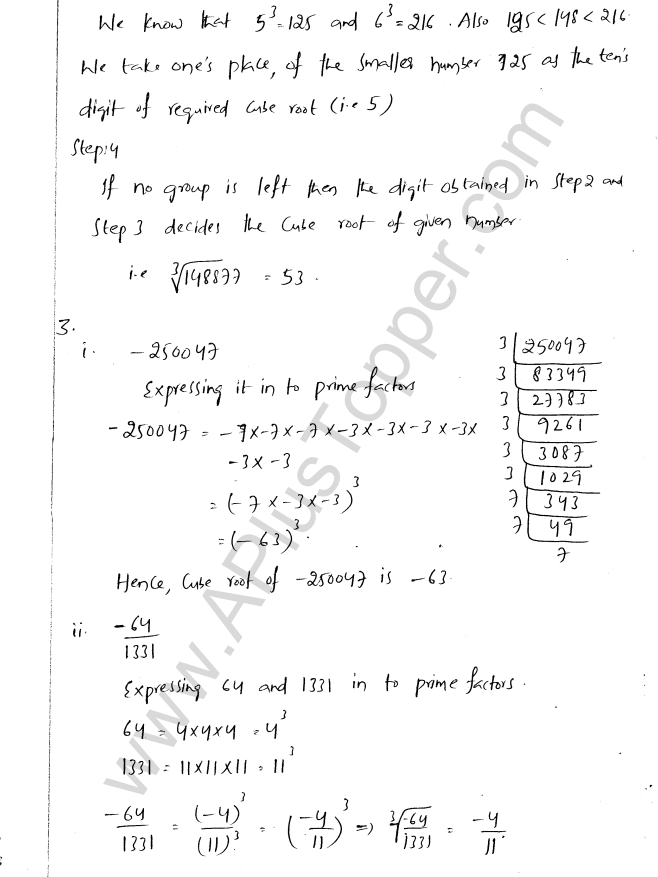 We know that 5³=125 and 6³=216. Also 125<148<216.
We take one's place, of the smaller number 125 as the ten's
digit of required cube root (i.e 5)
Step:4
If no group is left then the digit obtained in step 2 and
Step 3 decides the Cube root of given number.
i.e ∛148877 = 53.
3.
i. -250047
Expressing it in to prime factors
-250047 = -7x-7x-7x-3x-3x-3x-3x
-3x-3
= (-7x-3x-3)³
= (-63)³.
3 | 250047
3 | 83349
3 | 27783
3 | 9261
3 | 3087
3 | 1029
7 | 343
7 | 49
7
Hence, Cube root of -250047 is -63.
ii. -64/1331
Expressing 64 and 1331 in to prime factors.
64 = 4x4x4 = 4³
1331 = 11x11x11 = 11³
-64/1331 = (-4)³/(11)³ = (-4/11)³ => ∛-64/1331 = -4/11.
www.APlusTopper.com